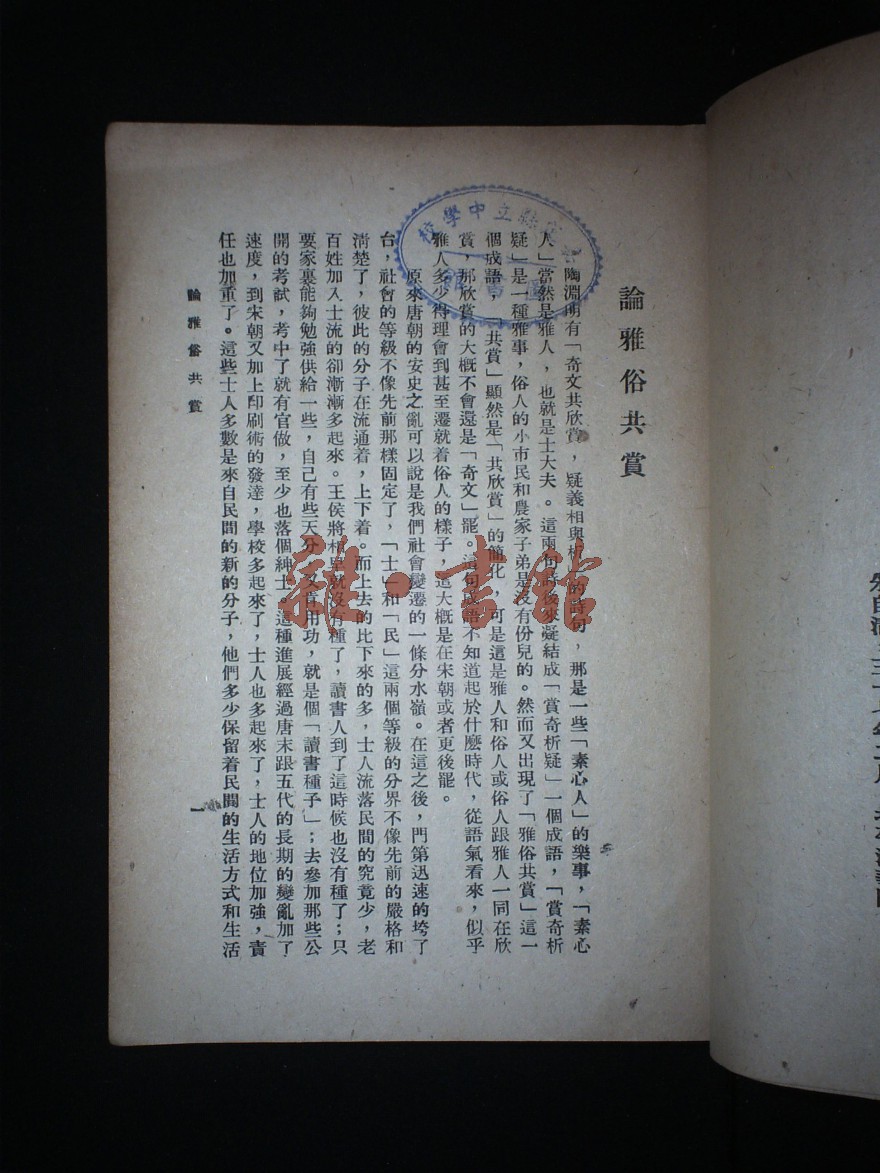 論雅俗共賞
陶淵明有「奇文共欣賞，疑義相與析」的詩句，那是一些「素心人」的樂事，「素心
人」當然是雅人，也就是士大夫。這兩句詩後來凝結成「賞奇析疑」一個成語，「賞奇析
疑」是一種雅事，俗人的小市民和農家子弟是沒有份兒的。然而又出現了「雅俗共賞」這一
個成語，「共賞」顯然是「共欣賞」的簡化，可是這是雅人和俗人或俗人跟雅人一同在欣
賞，那欣賞的大概不會還是「奇文」罷。這句成語不知道起於什麼時代，從語氣看來，似乎
雅人多少得理會到甚至遷就着俗人的樣子，這大概是在宋朝或者更後罷。
原來唐朝的安史之亂可以說是我們社會變遷的一條分水嶺。在這之後，門第迅速的垮了
台，社會的等級不像先前那樣固定了，「士」和「民」這兩個等級的分界不像先前的嚴格和
清楚了，彼此的分子在流通着，上下着。而上去的比下來的多，士人流落民間的究竟少，老
百姓加入士流的卻漸漸多起來。王侯將相早就沒有種了，讀書人到了這時候也沒有種了；只
要家裏能夠勉強供給一些，自己有些天分，又肯用功，就是個「讀書種子」；去參加那些公
開的考試，考中了就有官做，至少也落個紳士。這種進展經過唐末跟五代的長期的變亂加了
速度，到宋朝又加上印刷術的發達，學校多起來了，士人也多起來了，士人的地位加強，責
任也加重了。這些士人多數是來自民間的新的分子，他們多少保留着民間的生活方式和生活
論雅俗共賞
一
縣立中學校
雜·書館